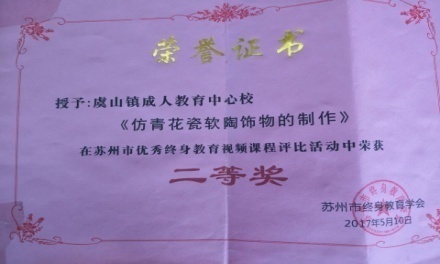 荣誉证书
授予:虞山镇成人教育中心校
《仿青花瓷软陶饰物的制作》
在苏州市优秀终身教育视频课程评比活动中荣获
二等奖
苏州市终身教育学会
2017年5月10日